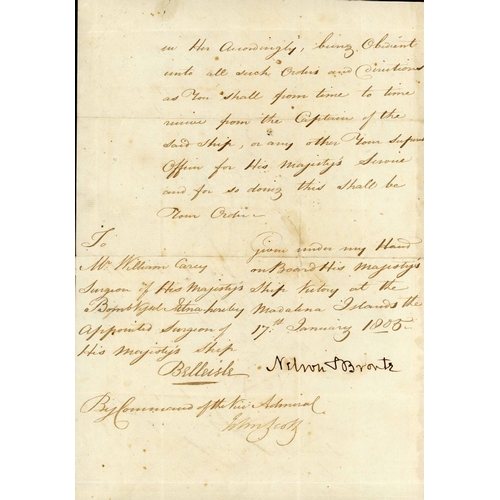 in Her Accordingly, being Obedient
unto all such Orders and directions
as You shall from time to time
receive from the Captain of the
said Ship, or any other Your Superior
Officer for His Majesty's Service
and for so doing this shall be
Your Order
To
Mr William Carey
Surgeon of His Majesty's
Bomb Vessel Etna hereby
Appointed Surgeon of
His Majesty's Ship
Belleisle
Given under my Hand
on Board His Majesty's
Ship Victory at the
Madalena Islands the
17th January 1805
Nelson & Bronte
By Command of the Vice Admiral
John Scott